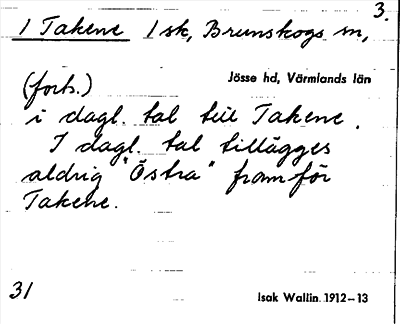 3.
1 Takene 1 sk, Brunskogs sn,
Jösse hd, Värmlands län
(forts.)
i dagl. tal till Takene.
I dagl. tal tillägges
aldrig "Östra" framför
Takene.
31
Isak Wallin. 1912-13